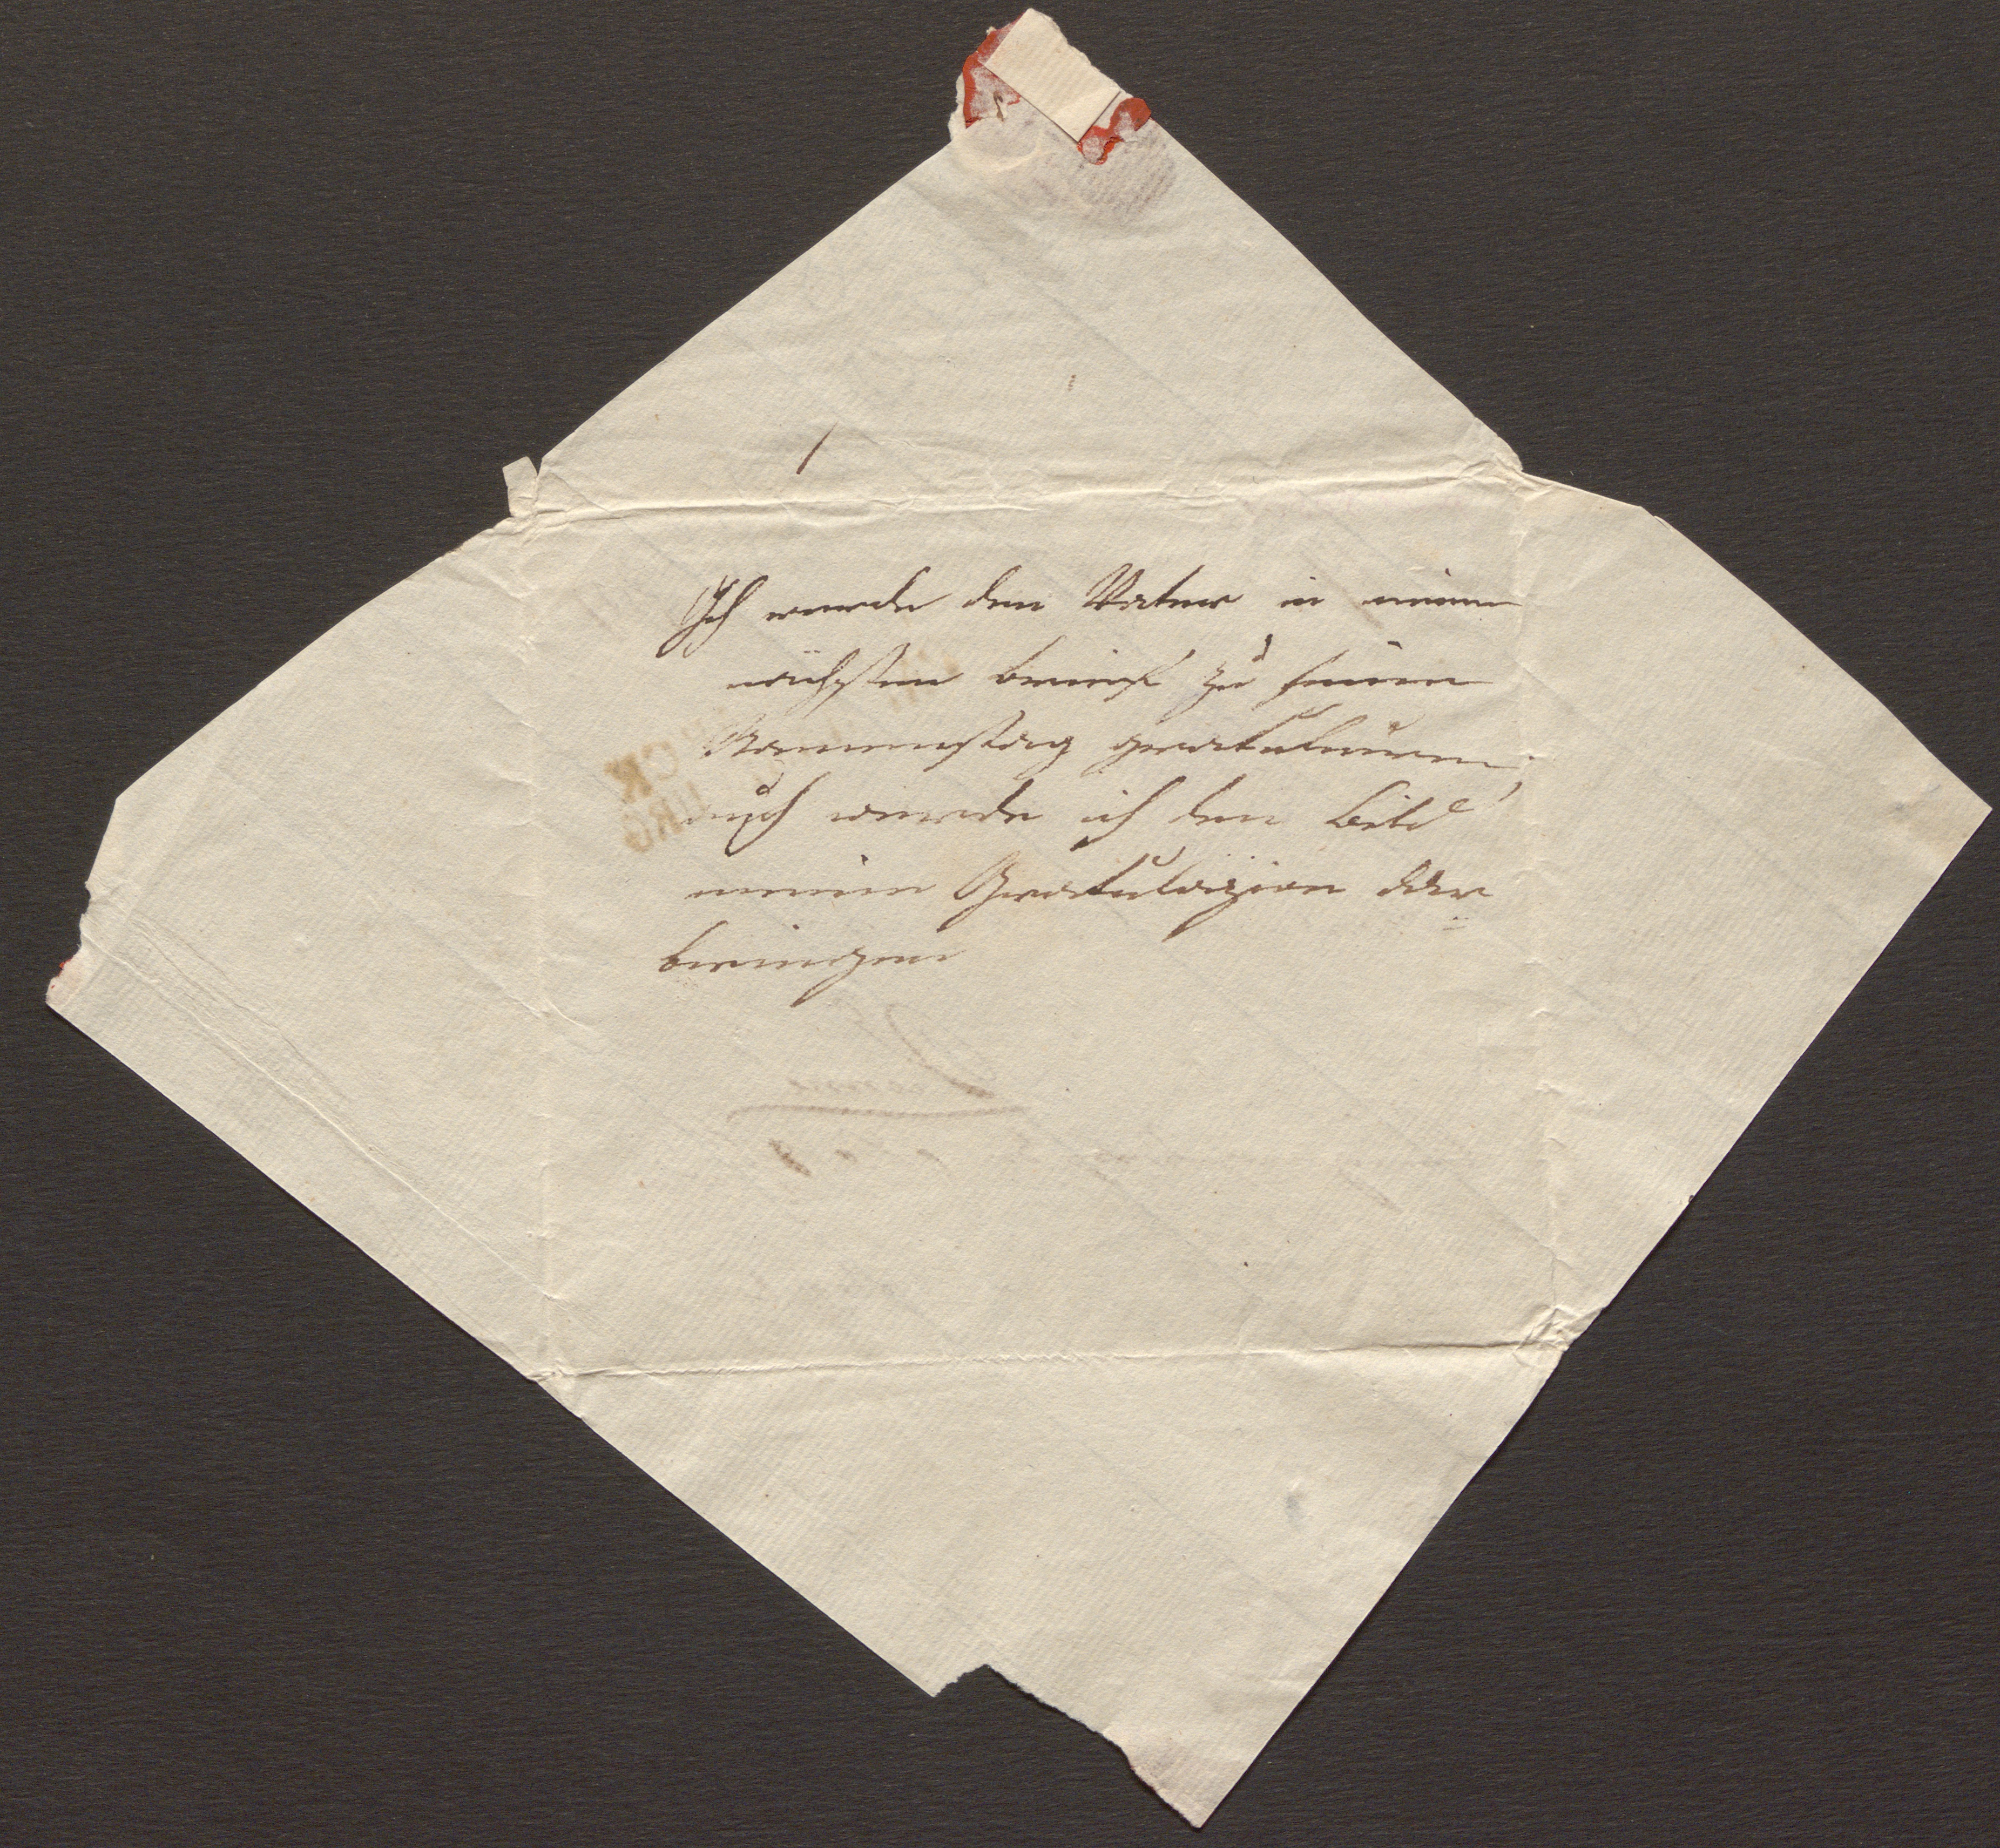 Ich werde den Vater in meinen
nächsten brief zu seinen
Nammenstag gratuliren,
auch werde ich den Bild
meine Gratulazion dar
bringen